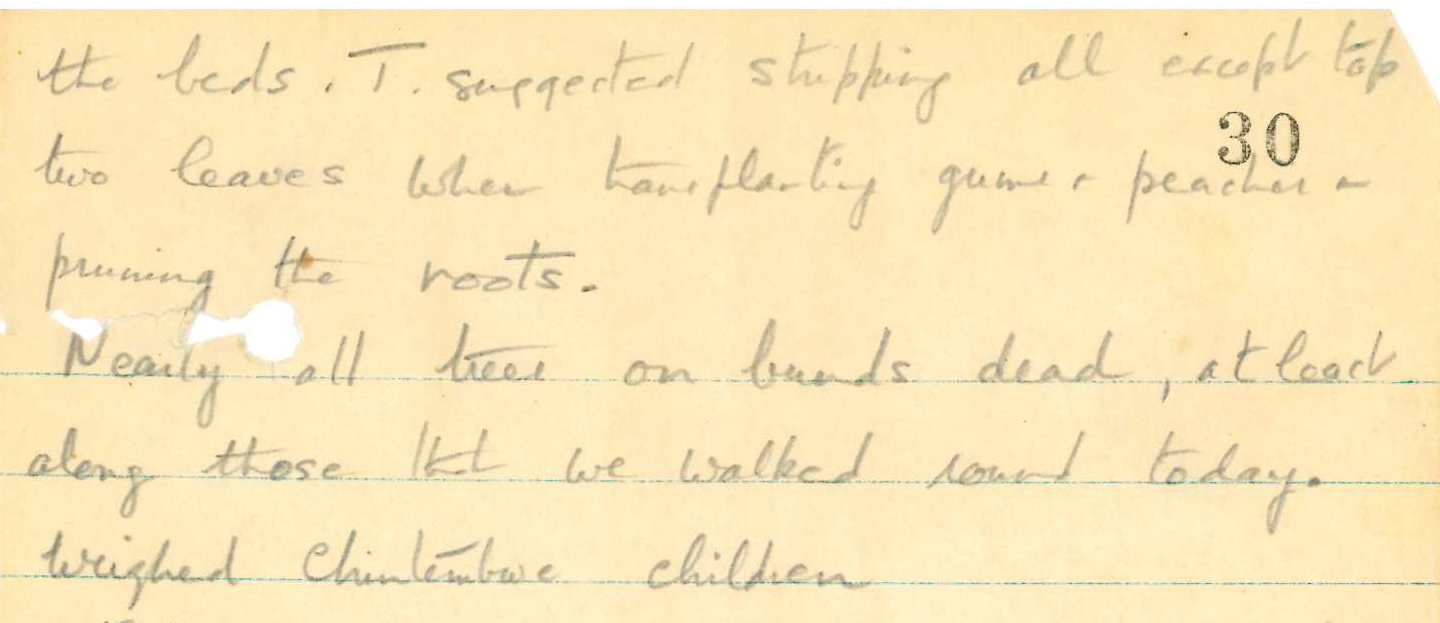 the beds. T. suggested stripping all except top
30
two leaves when transplanting gums & peaches &
pruning the roots.
Nearly all trees on bunds dead, at least
along those that we walked round today.
Weighed Chintembwe children